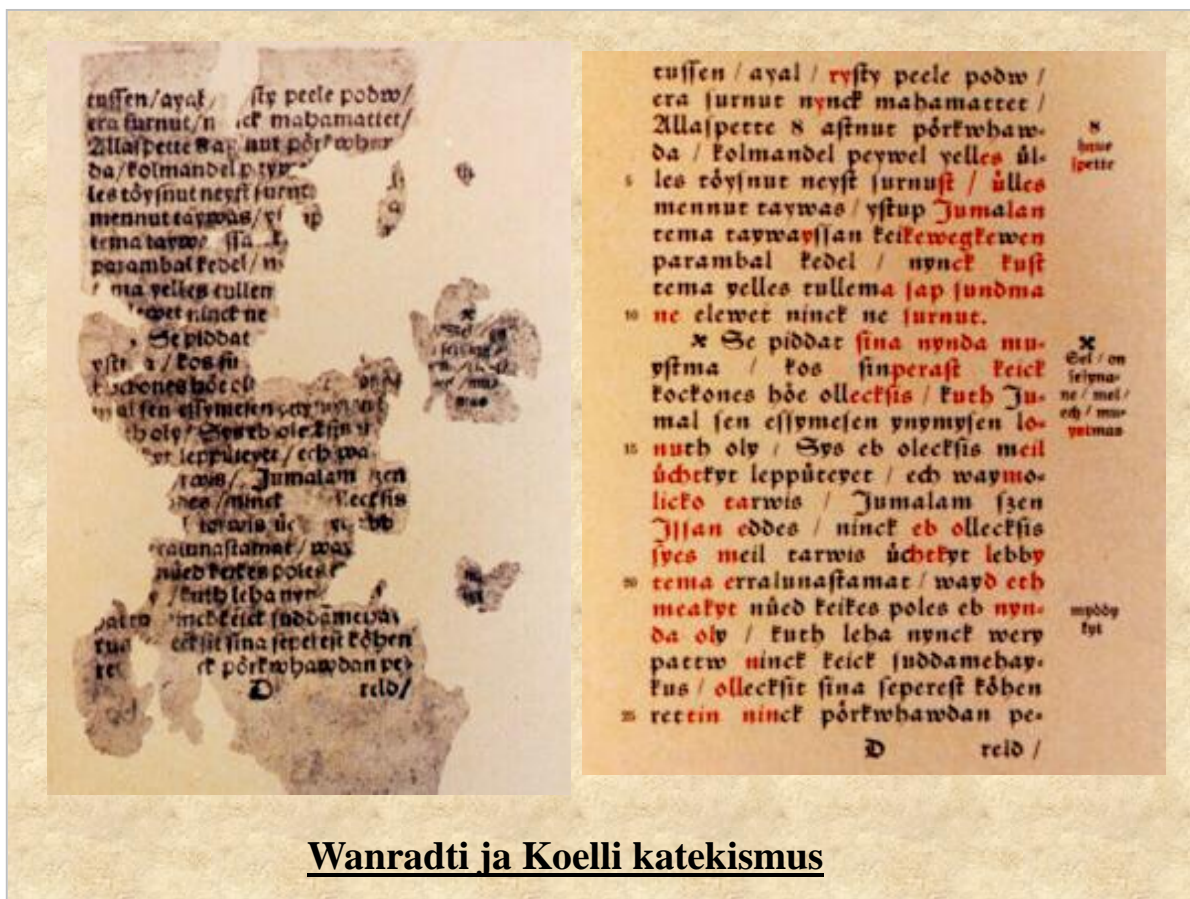 tussen / ayal / sty peele podw /
era surnut / n ick mahamattet /
Allaspette 8 a nut pörkwhaw
da / kolmandel p
les töysnut neyst surnu
mennut taywas / ys
tema tayw ssa
parambal kedel / n
ma yelles tullen
lewet ninck ne
Se piddat
yst / kos sin
kockones höe oll
mal sen essymesen
th oly / Sys eb oleksis
kyt leppüteyet / ech wa
rwis / Jumalam szen
des / ninck llecksis
tarwis üc bb
ralunastamat / way
nüed keikes poles
/ kuth leha nyn
pattw ninck keick suddamehay
kus lecksit sina seperest köhen
ret ck pörkwhawdan pe=
D reld /
tussen / ayal / rysty peele podw /
era surnut nynck mahamattet /
Allaspette 8 astnut pörkwhaw=
da / kolmandel peywel yelles ül=
5 les töysnut neyst surnust / ülles
mennut taywas / ystup Jumalan
tema taywayssan keikewegkewen
parambal kedel / nynck kust
tema yelles tullema sap sundma
10 ne elewet ninck ne surnut.
✠ Se piddat sina nynda mu=
ystma / kos sinperast keick
kockones höe ollecksis / kuth Ju=
mal sen essymesen ynymysen lo=
15 nuth oly / Sys eb olecksis meil
üchtkyt leppüteyet / ech waymo=
licko tarwis / Jumalam szen
Jssan eddes / ninck eb ollecksis
syes meil tarwis üchtkyt lebby
20 tema erralunastamat / wayd eth
meakyt nüed keikes poles eb nyn=
da oly / kuth leha nynck wery
pattw ninck keick suddamehay=
kus / ollecksit sina seperest köhen
25 rettin ninck pörkwhawdan pe=
D reld /
8
haue
spette
✠
Sel / on
selyna=
ne / mel /
ech / mu=
ystmas
myddy
kyt
Wanradti ja Koelli katekismus